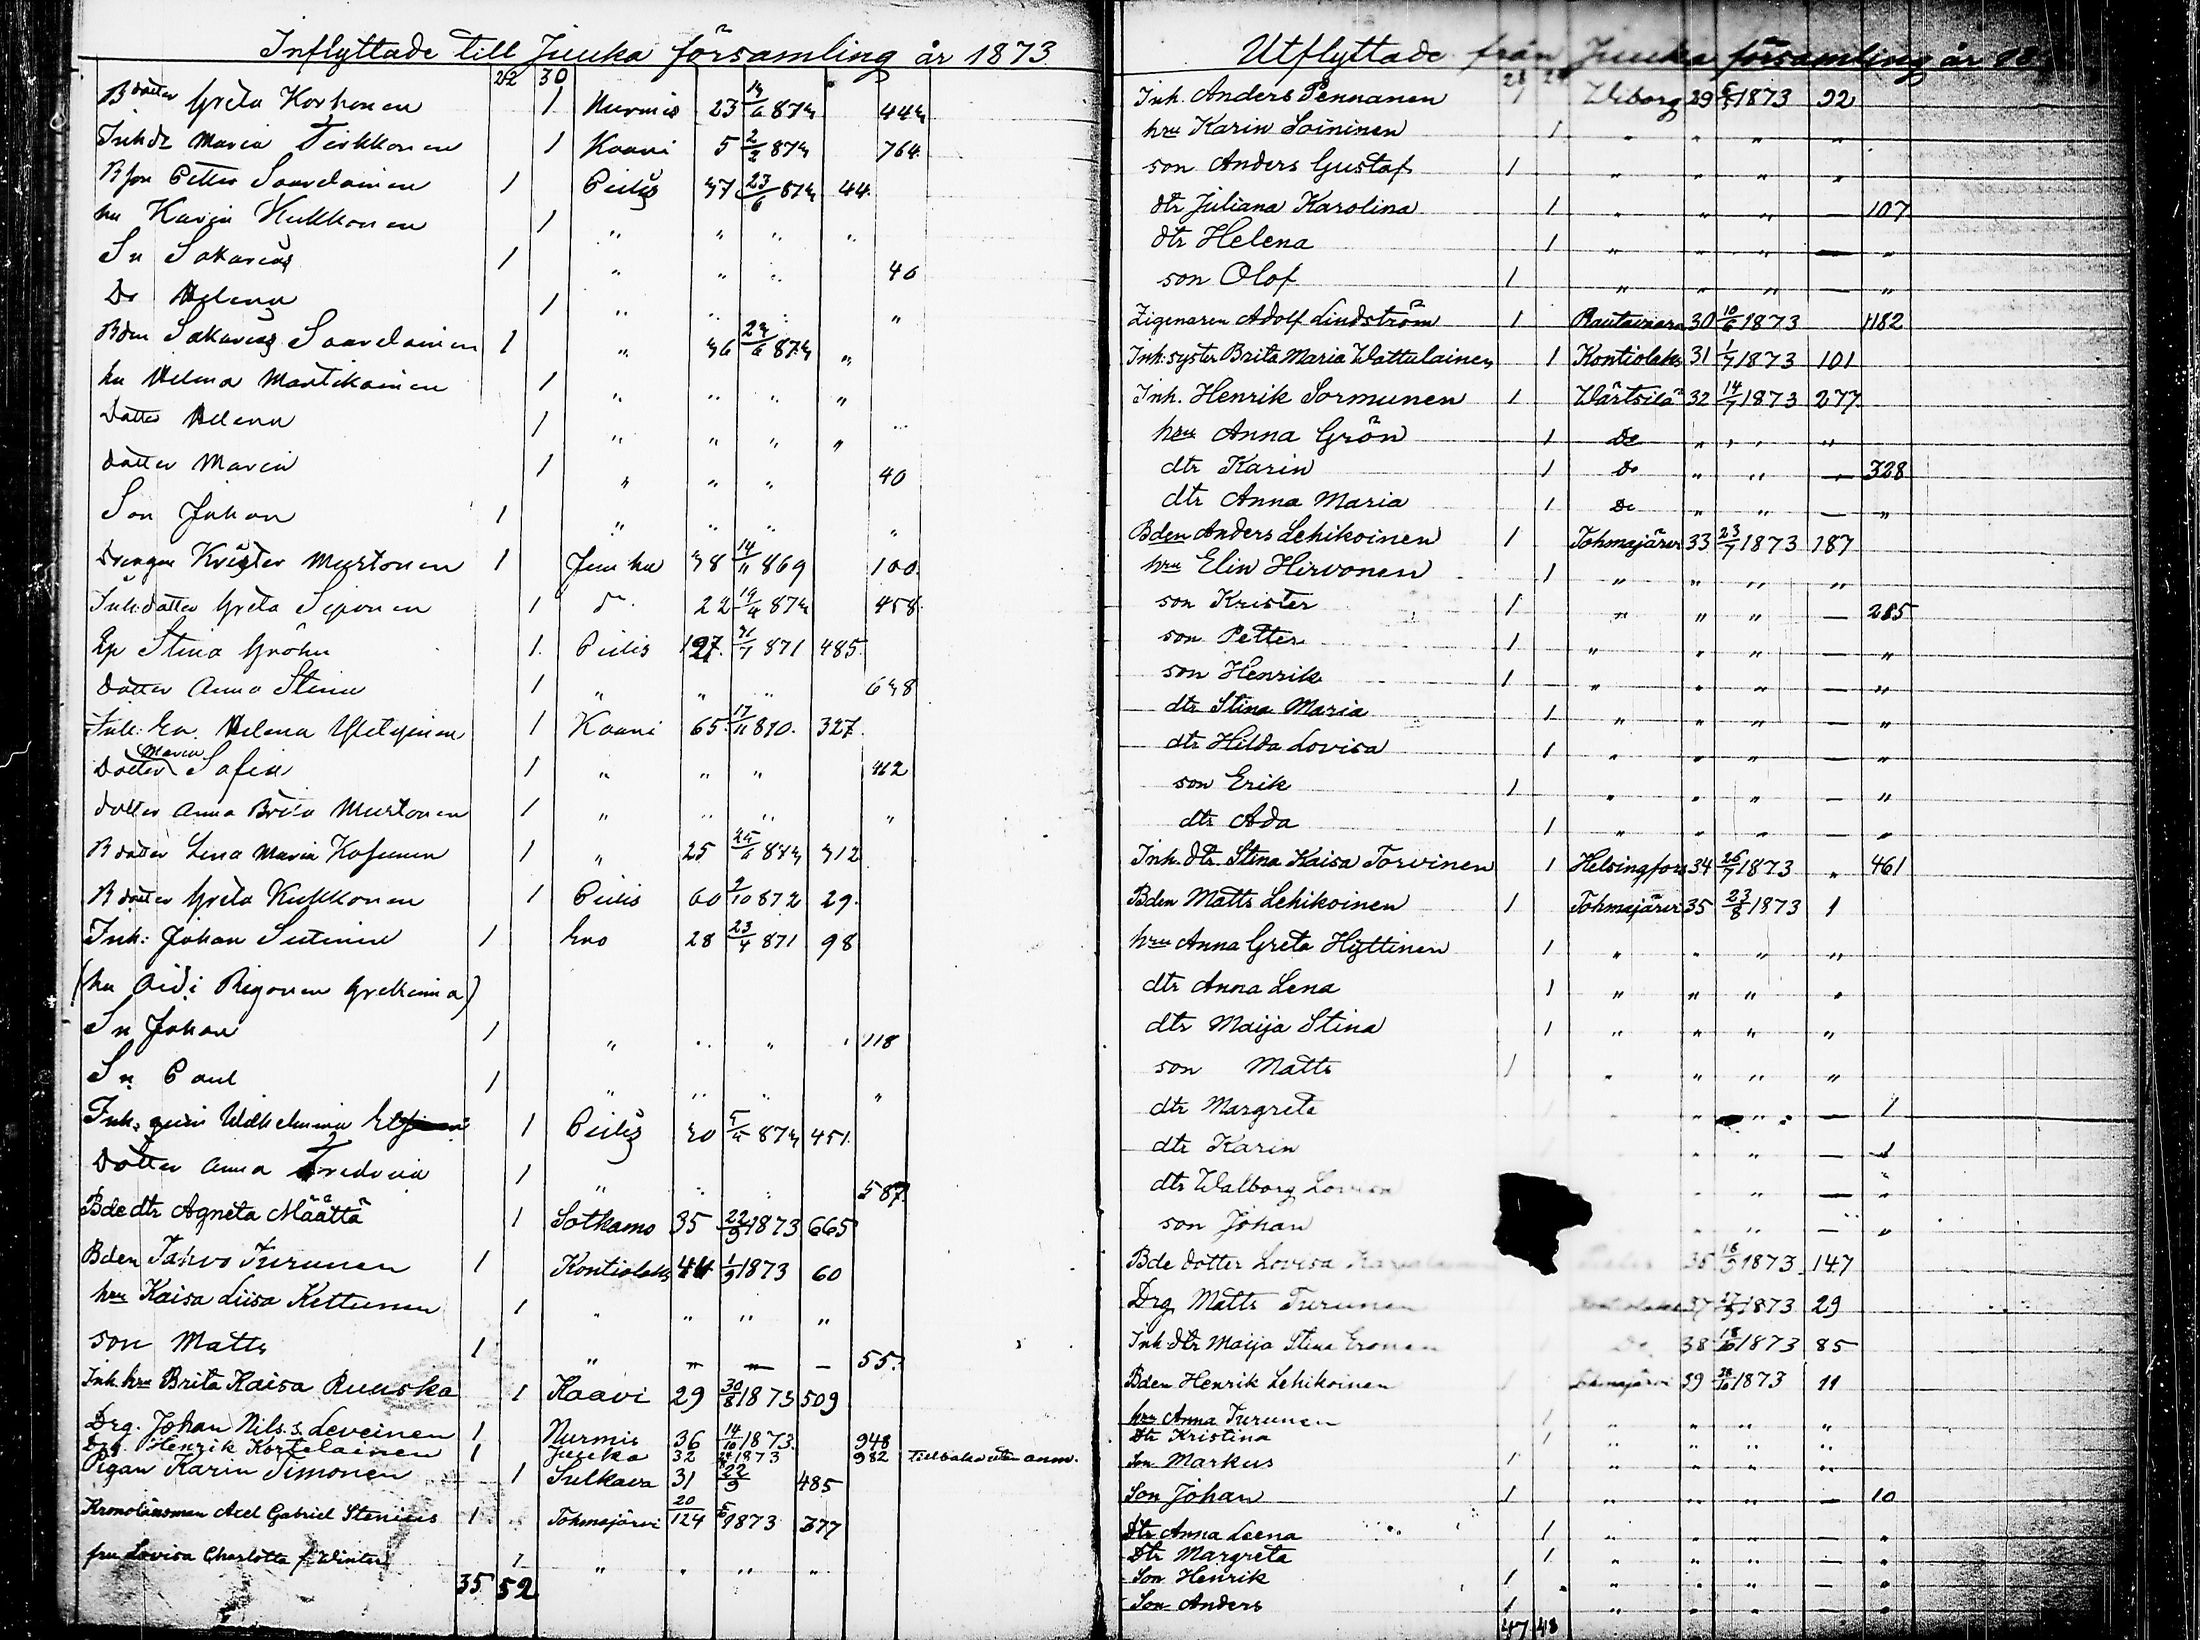 Inflyttade till Juuka församling år 1873
22 30
B dotter Greta Korhonen 1 Nurmis 23 873 443
Inh dr Maria Tirkkonen 1 Kaavi 5 2/2 873 764
B son Petter Saarelainen 1 Pielis 37 23/6 873 44
hu Karin Kukkonen 1 " " " "
Sn Sakarias 1 " " " 40
Dr Helena 1 " " " "
Bden Sakarias Saarelainen 1 " 36 23/6 873 "
hu Helena Martikainen 1 " " " "
Dotter Helena 1 " " " "
dotter Maria 1 " " " 40
Son Johan 1 " " " "
Drengen Krister Murtonen 1 Juuka 38 14/11 869 100
Inh: dotter Greta Siponen 1 dr 22 19/4 873 458
Stina Gröhn 1 Pielis 127 871 485
dotter Anna Stina 1 " " " 638
Inh: Helena 1 Kaavi 65 17/11 870 327
Dotter Maria Sofia 1 " " " 462
dotter Anna Brita Murtonen 1 " " " "
B dotter Lena Maria Kosunen 1 " 25 873 312
B dotter Greta Kukkonen 1 Pielis 60 2/10 872 29
Inh: Johan Sutinen 1 Eno 28 23/4 871 98
(hu
Sn Johan 1 " " " " 118
Sn Paul 1 " " " "
Inh: Wilhelmina 1 Pielis 30 873 451
Dotter Anna Fredrica 1 " " " 587
Bde dtr Agneta Määttä 1 Sotkamo 35 22/9 1873 665
Bden Tahvo Turunen 1 Kontiolaks 44 1/9 1873 60
hru Kaisa Liisa Kettunen 1 " " " "
son Matts 1 " " — — 55
Inh. hru Brita Kaisa Ruuska 1 Kaavi 29 30/8 1873 509
Drg. Johan Nils. s. Leveinen 1 Nurmis 36 14/10 1873 948
Drg. Henrik Kortelainen 1 Juuka 32 1873 982 Tillbaka utan anm.
Pigan Karin Timonen 1 Sulkava 31 22/9 485
Kronolänsman Axel Gabriel Stenius 1 Tohmajärvi 20/124 5/6 1873 377
fru Lovisa Charlotta f. Winter 1 " " " "
35 52
Utflyttade från Juuka församling år
Inh. Anders Pennanen 1 Wiborg 29 1873 92
hru Karin Loininen 1 " " " "
son Anders Gustaf 1 " " " "
dtr Juliana Karolina 1 " " " — 107
dtr Helena 1 " " " — "
son Olof 1 " " " — "
Zigenaren Adolf Lindström 1 Rautavaara 30 10/6 1873 1182
Inh. syster Brita Maria Wattulainen 1 Kontiolaks 31 1/7 1873 101
Inh. Henrik Sormunen 1 Wärtsilä 32 14/7 1873 277
hru Anna Grön 1 Do " " " "
dtr Karin 1 Do " " — 328
dtr Anna Maria 1 Do " " — "
Bden Anders Lehikoinen 1 Tohmajärvi 33 23/7 1873 187
hru Elin Hirvonen 1 " " " "
son Krister 1 " " " — 285
son Petter 1 " " " — "
son Henrik 1 " " " — "
dtr Stina Maria 1 " " " — "
dtr Hilda Lovisa 1 " " " — "
son Erik 1 " " " — "
dtr Ada 1 " " " — "
Inh. dtr Stina Kaisa Torvinen 1 Helsingfors 34 26/7 1873 " 461
Bden Matts Lehikoinen 1 Tohmajärvi 35 23/8 1873 1
hru Anna Greta Hyttinen 1 " " " "
dtr Anna Lena 1 " " " "
dtr Maija Stina 1 " " " "
son Matts 1 " " " "
dtr Margreta " " — 1
dtr Karin " " — 1
dtr Walborg Lovisa " " — "
son Johan " " — "
Bde dotter Lovisa 36 1873 147
Drg Matts Turunen 37 1873 29
Inh dtr Maija Stina Eronen 38 18/10 1873 85
Bden Henrik Lehikoinen 39 1873 11
hru Anna Turunen 1 " " " "
Dtr Kristina " " " "
Son Markus 1 " " " "
Son Johan 1 " " " — 10
Dtr Anna Leena 1 " " " — "
Dtr Margreta 1 " " " — "
Son Henrik 1 " " " — "
Son Anders 1 " " " — "
47 48